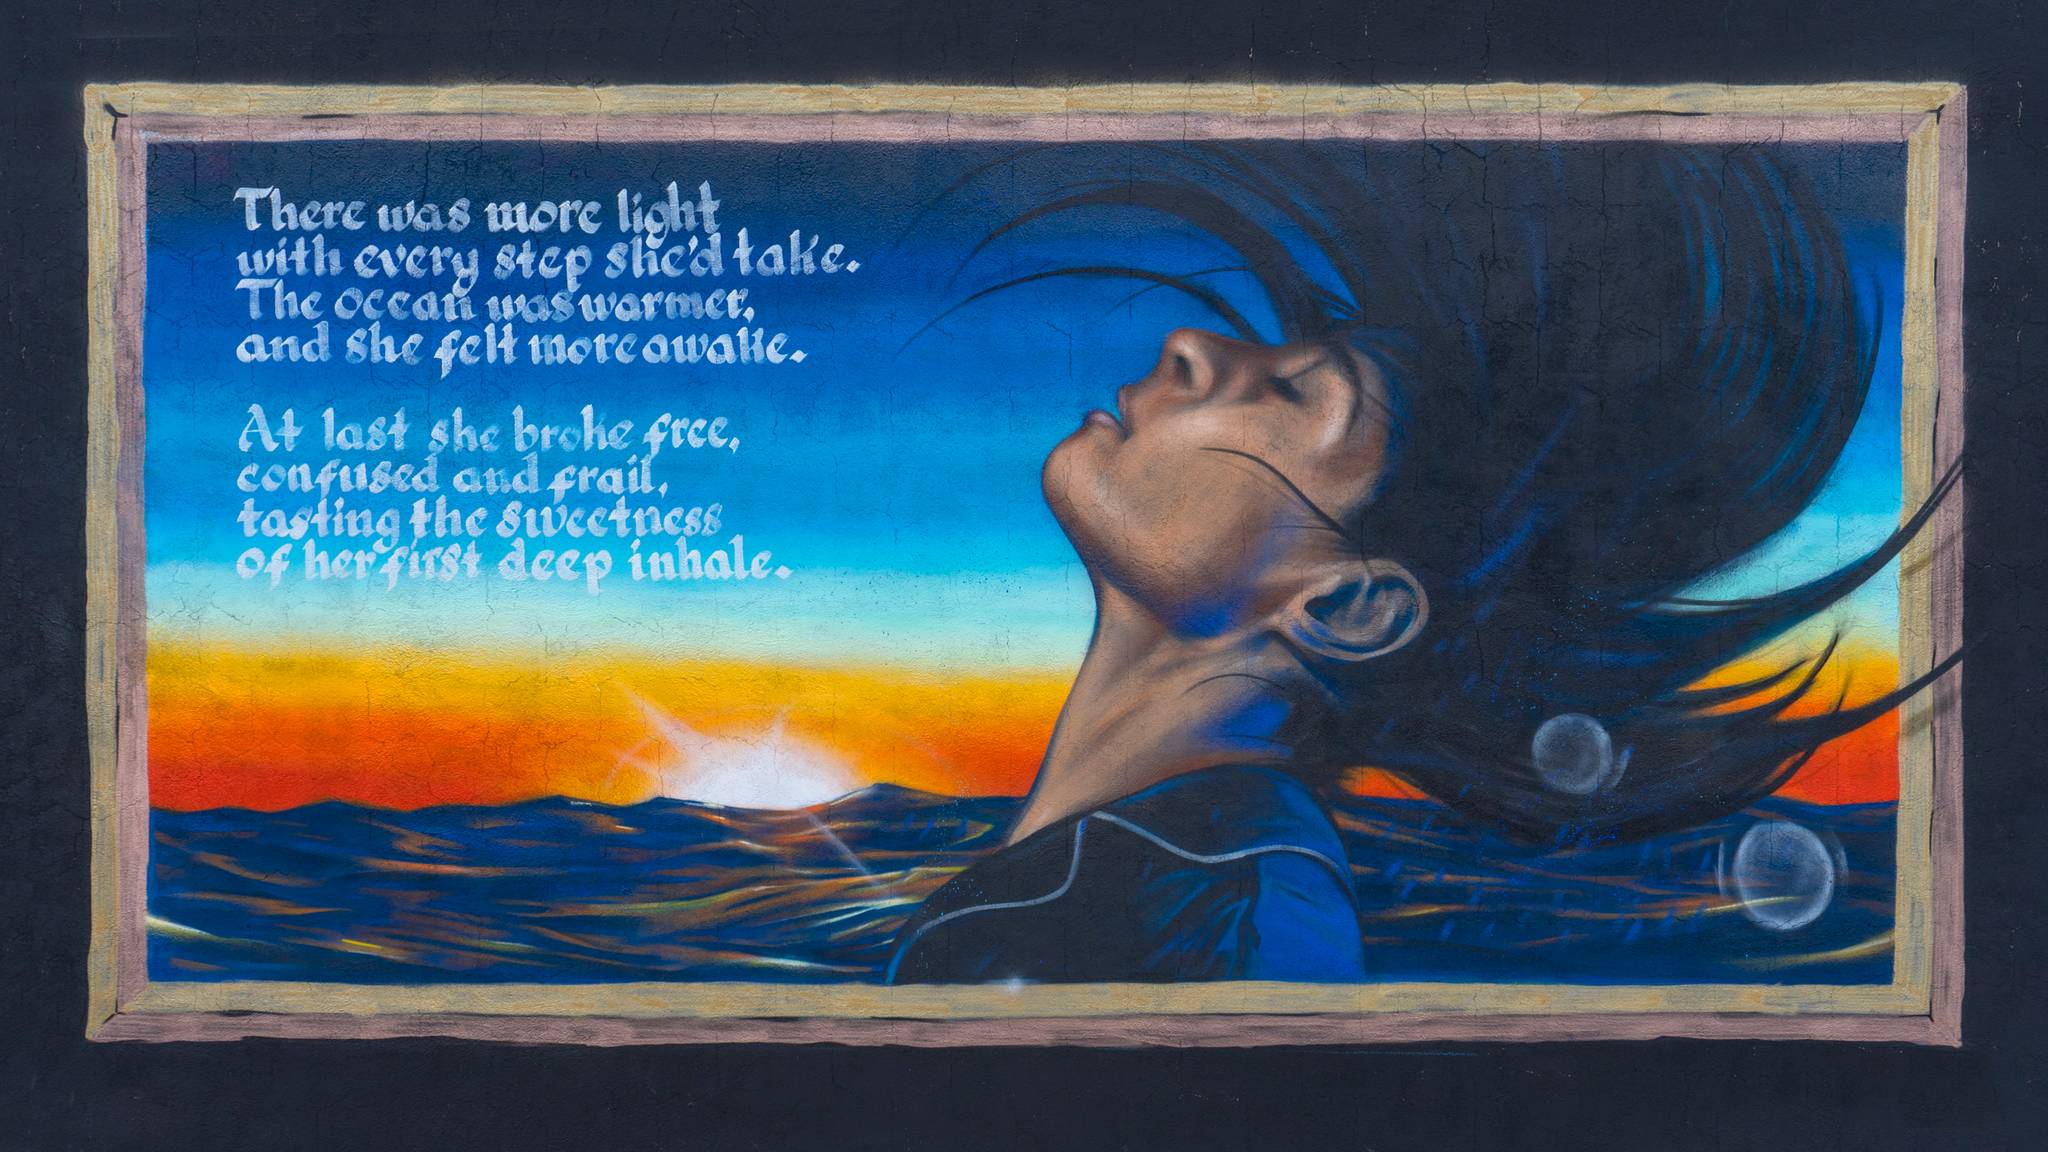 There was more light
with every step she'd take.
The ocean was warmer,
and she felt more awake.
At last she broke free,
confused and frail,
tasting the sweetness
of her first deep inhale.